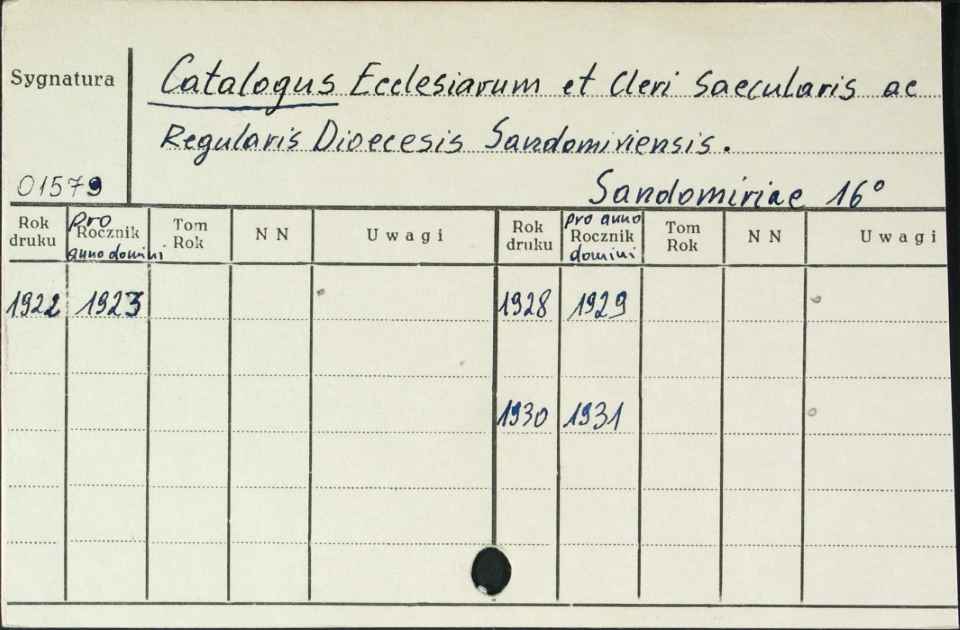 Sygnatura
Catalogus Ecclesiarum et Cleri Saecularis ac
Regularis Dioecesis Sandomiriensis.
01579
Sandomiriae 16°
Rok druku
pro Rocznik anno domini
Tom Rok
N N
Uwagi
Rok druku
pro anno Rocznik domini
Tom Rok
N N
Uwagi
1922 1923
1928 1929
1930 1931